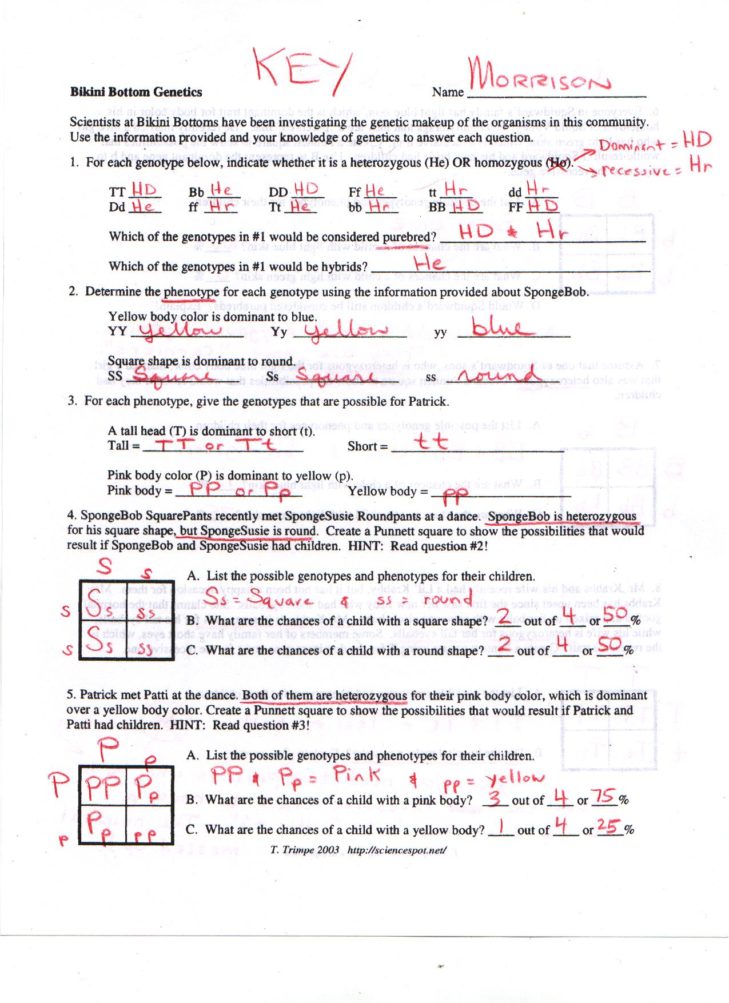 KEY
Bikini Bottom Genetics Name MORRISON
Scientists at Bikini Bottoms have been investigating the genetic makeup of the organisms in this community.
Use the information provided and your knowledge of genetics to answer each question.
Dominint = HD
1. For each genotype below, indicate whether it is a heterozygous (He) OR homozygous (Ho).
recessive = Hr
TT HD Bb He DD HD Ff He tt Hr dd Hr
Dd He ff Hr Tt He bb Hr BB HD FF HD
Which of the genotypes in #1 would be considered purebred? HD & Hr
Which of the genotypes in #1 would be hybrids? He
2. Determine the phenotype for each genotype using the information provided about SpongeBob.
Yellow body color is dominant to blue.
YY yellow Yy yellow yy blue
Square shape is dominant to round.
SS Square Ss Square ss round
3. For each phenotype, give the genotypes that are possible for Patrick.
A tall head (T) is dominant to short (t).
Tall = TT or Tt Short = tt
Pink body color (P) is dominant to yellow (p).
Pink body = PP or Pp Yellow body = pp
4. SpongeBob SquarePants recently met SpongeSusie Roundpants at a dance. SpongeBob is heterozygous
for his square shape, but SpongeSusie is round. Create a Punnett square to show the possibilities that would
result if SpongeBob and SpongeSusie had children. HINT: Read question #2!
S s
A. List the possible genotypes and phenotypes for their children.
s Ss ss
Ss = Square & ss = round
B. What are the chances of a child with a square shape? 2 out of 4 or 50%
s Ss ss
C. What are the chances of a child with a round shape? 2 out of 4 or 50%
5. Patrick met Patti at the dance. Both of them are heterozygous for their pink body color, which is dominant
over a yellow body color. Create a Punnett square to show the possibilities that would result if Patrick and
Patti had children. HINT: Read question #3!
P p
A. List the possible genotypes and phenotypes for their children.
P PP Pp
PP & Pp = Pink & pp = yellow
B. What are the chances of a child with a pink body? 3 out of 4 or 75%
p Pp pp
C. What are the chances of a child with a yellow body? 1 out of 4 or 25%
T. Trimpe 2003 http://sciencespot.net/